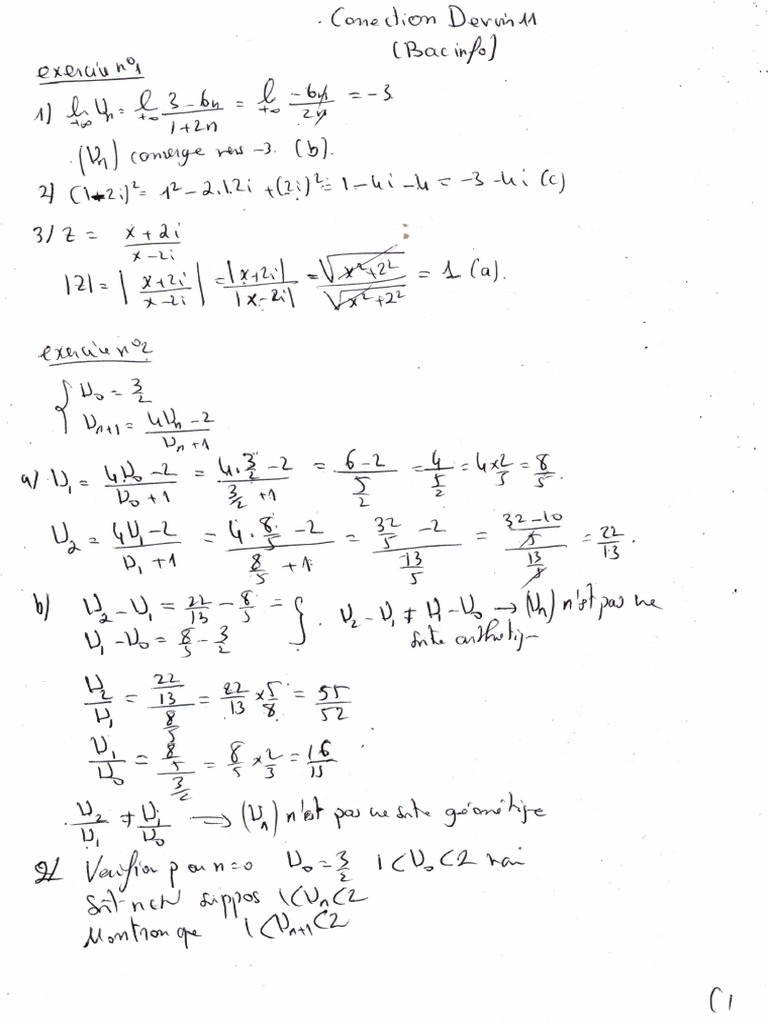 Correction Devoir n1
(Bac info)
exercice n°1
1) lim Un = lim (3-6n)/(1+2n) = lim (-6n)/(2n) = -3
+∞ +∞ +∞
(Un) converge vers -3. (b).
2/ (1-2i)² = 1² - 2.1.2i + (2i)² = 1 - 4i - 4 = -3 - 4i (c)
3/ Z = (x+2i)/(x-2i)
|Z| = |(x+2i)/(x-2i)| = |x+2i|/|x-2i| = √(x²+2²)/√(x²+2²) = 1 (a).
exercice n°2
{ U0 = 3/2
Un+1 = (4Un-2)/(Un+1)
a/ U1 = (4U0-2)/(U0+1) = (4.3/2-2)/(3/2+1) = (6-2)/(5/2) = 4/(5/2) = 4×2/5 = 8/5.
U2 = (4U1-2)/(U1+1) = (4.8/5-2)/(8/5+1) = (32/5-2)/(13/5) = ((32-10)/5)/(13/5) = 22/13.
b) U2-U1 = 22/13 - 8/5 = } . U2-U1 ≠ U1-U0 → (Un) n'est pas une
U1-U0 = 8/5 - 3/2 suite
U2/U1 = (22/13)/(8/5) = 22/13 × 5/8 = 55/52
U1/U0 = (8/5)/(3/2) = 8/5 × 2/3 = 16/15
U2/U1 ≠ U1/U0 → (Un) n'est pas une suite géométrique
2/ Verifion pour n=0 U0 = 3/2 1<U0<2 vrai
Soit n∈N suppos 1<Un<2
Montron que 1<Un+1<2
(1